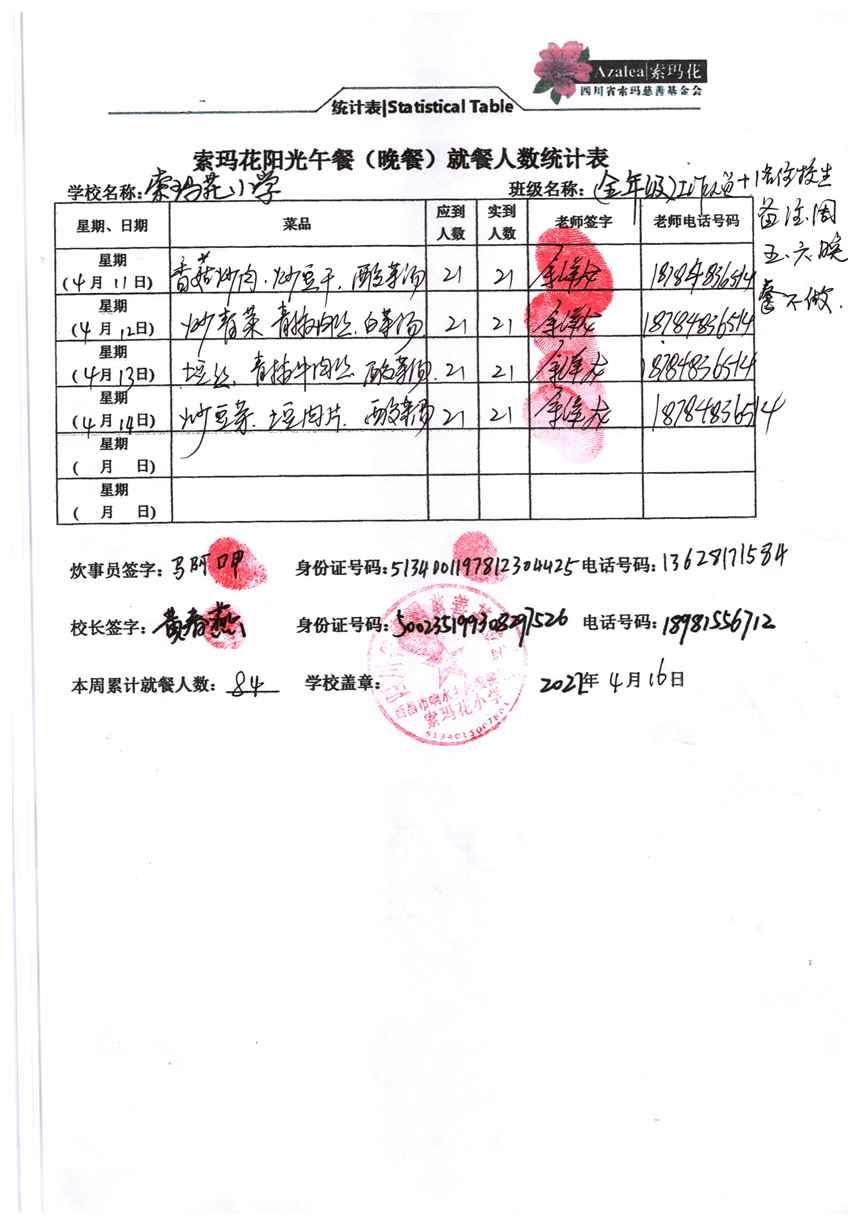 Azalea|索玛花
四川省索玛慈善基金会
统计表|Statistical Table
索玛花阳光午餐（晚餐）就餐人数统计表
学校名称:索玛花小学 班级名称:(全年级)工作人员+1名住校生
备注:周
五、六晚
餐不做.
星期、日期 菜品 应到人数 实到人数 老师签字 老师电话号码
星期
(4月11日) 香菇炒肉.炒豆干.酸菜汤 21 21 18784836514
星期
(4月12日) 炒青菜 青椒肉丝.白菜汤 21 21 18784836514
星期
(4月13日) 青椒牛肉丝 酸菜汤 21 21 18784836514
星期
(4月14日) 炒豆菜.土豆肉片.酸菜汤 21 21 18784836514
星期
( 月 日)
星期
( 月 日)
炊事员签字:马阿呷 身份证号码:5134001197812304425 电话号码:13628171584
校长签字:黄春燕 身份证号码:500235199308297526 电话号码:18981556712
本周累计就餐人数:84 学校盖章: 2022年4月16日
索玛花小学